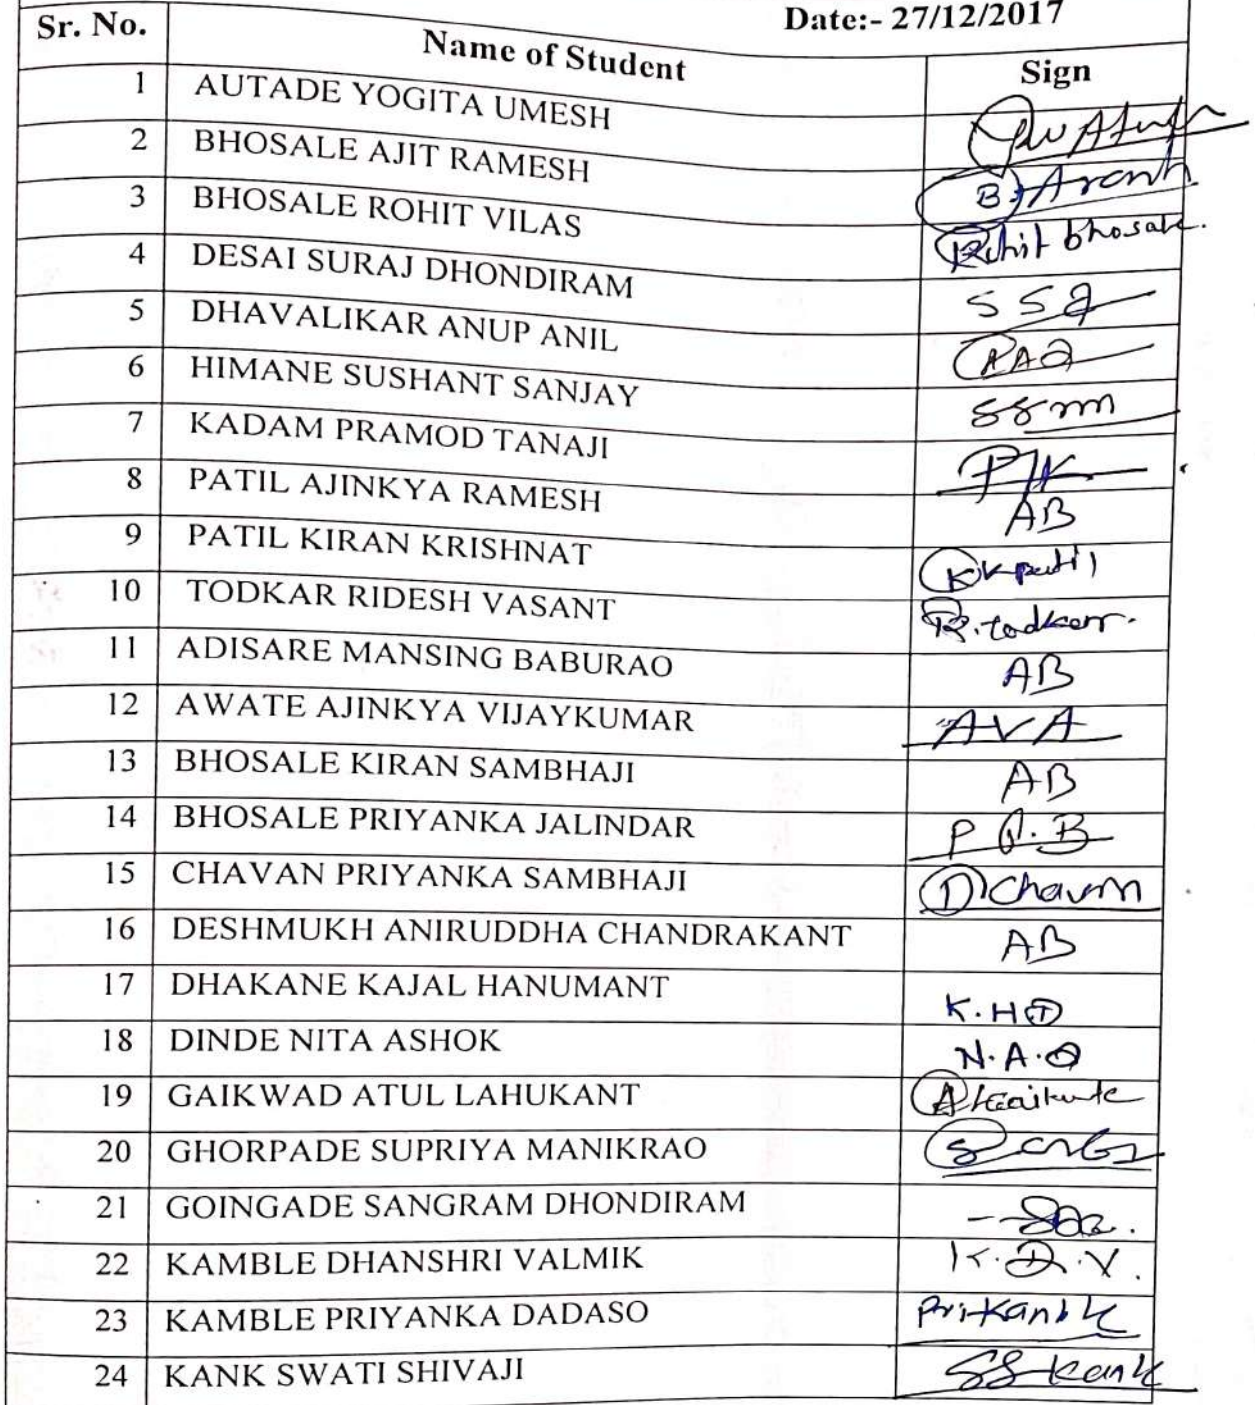 Date:- 27/12/2017
Sr. No. Name of Student Sign
1 AUTADE YOGITA UMESH
2 BHOSALE AJIT RAMESH
3 BHOSALE ROHIT VILAS Rohit bhosale.
4 DESAI SURAJ DHONDIRAM
5 DHAVALIKAR ANUP ANIL
6 HIMANE SUSHANT SANJAY
7 KADAM PRAMOD TANAJI
8 PATIL AJINKYA RAMESH AB
9 PATIL KIRAN KRISHNAT KKpatil
10 TODKAR RIDESH VASANT R.todkar.
11 ADISARE MANSING BABURAO AB
12 AWATE AJINKYA VIJAYKUMAR AVA
13 BHOSALE KIRAN SAMBHAJI AB
14 BHOSALE PRIYANKA JALINDAR
15 CHAVAN PRIYANKA SAMBHAJI
16 DESHMUKH ANIRUDDHA CHANDRAKANT AB
17 DHAKANE KAJAL HANUMANT
18 DINDE NITA ASHOK
19 GAIKWAD ATUL LAHUKANT
20 GHORPADE SUPRIYA MANIKRAO
21 GOINGADE SANGRAM DHONDIRAM
22 KAMBLE DHANSHRI VALMIK K.D.V.
23 KAMBLE PRIYANKA DADASO
24 KANK SWATI SHIVAJI SS Kank